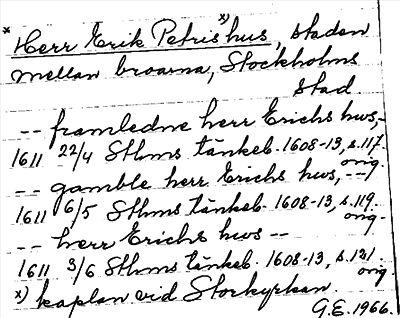 * Herr Erik Petris x) hus, staden
mellan broarna, Stockholms
stad
-- framledne herr Erichs hws,-
1611 22/4 Sthms tänkeb. 1608-13, s.117.
orig.
-- gamble herr Erichs hws, --
1611 6/5 Sthms tänkeb. 1608-13, s.119.
orig.
-- herr Erichs hws --
1611 3/6 Sthms tänkeb. 1608-13, s.121.
orig.
x) kaplan vid Storkyrkan.
G.E. 1966.